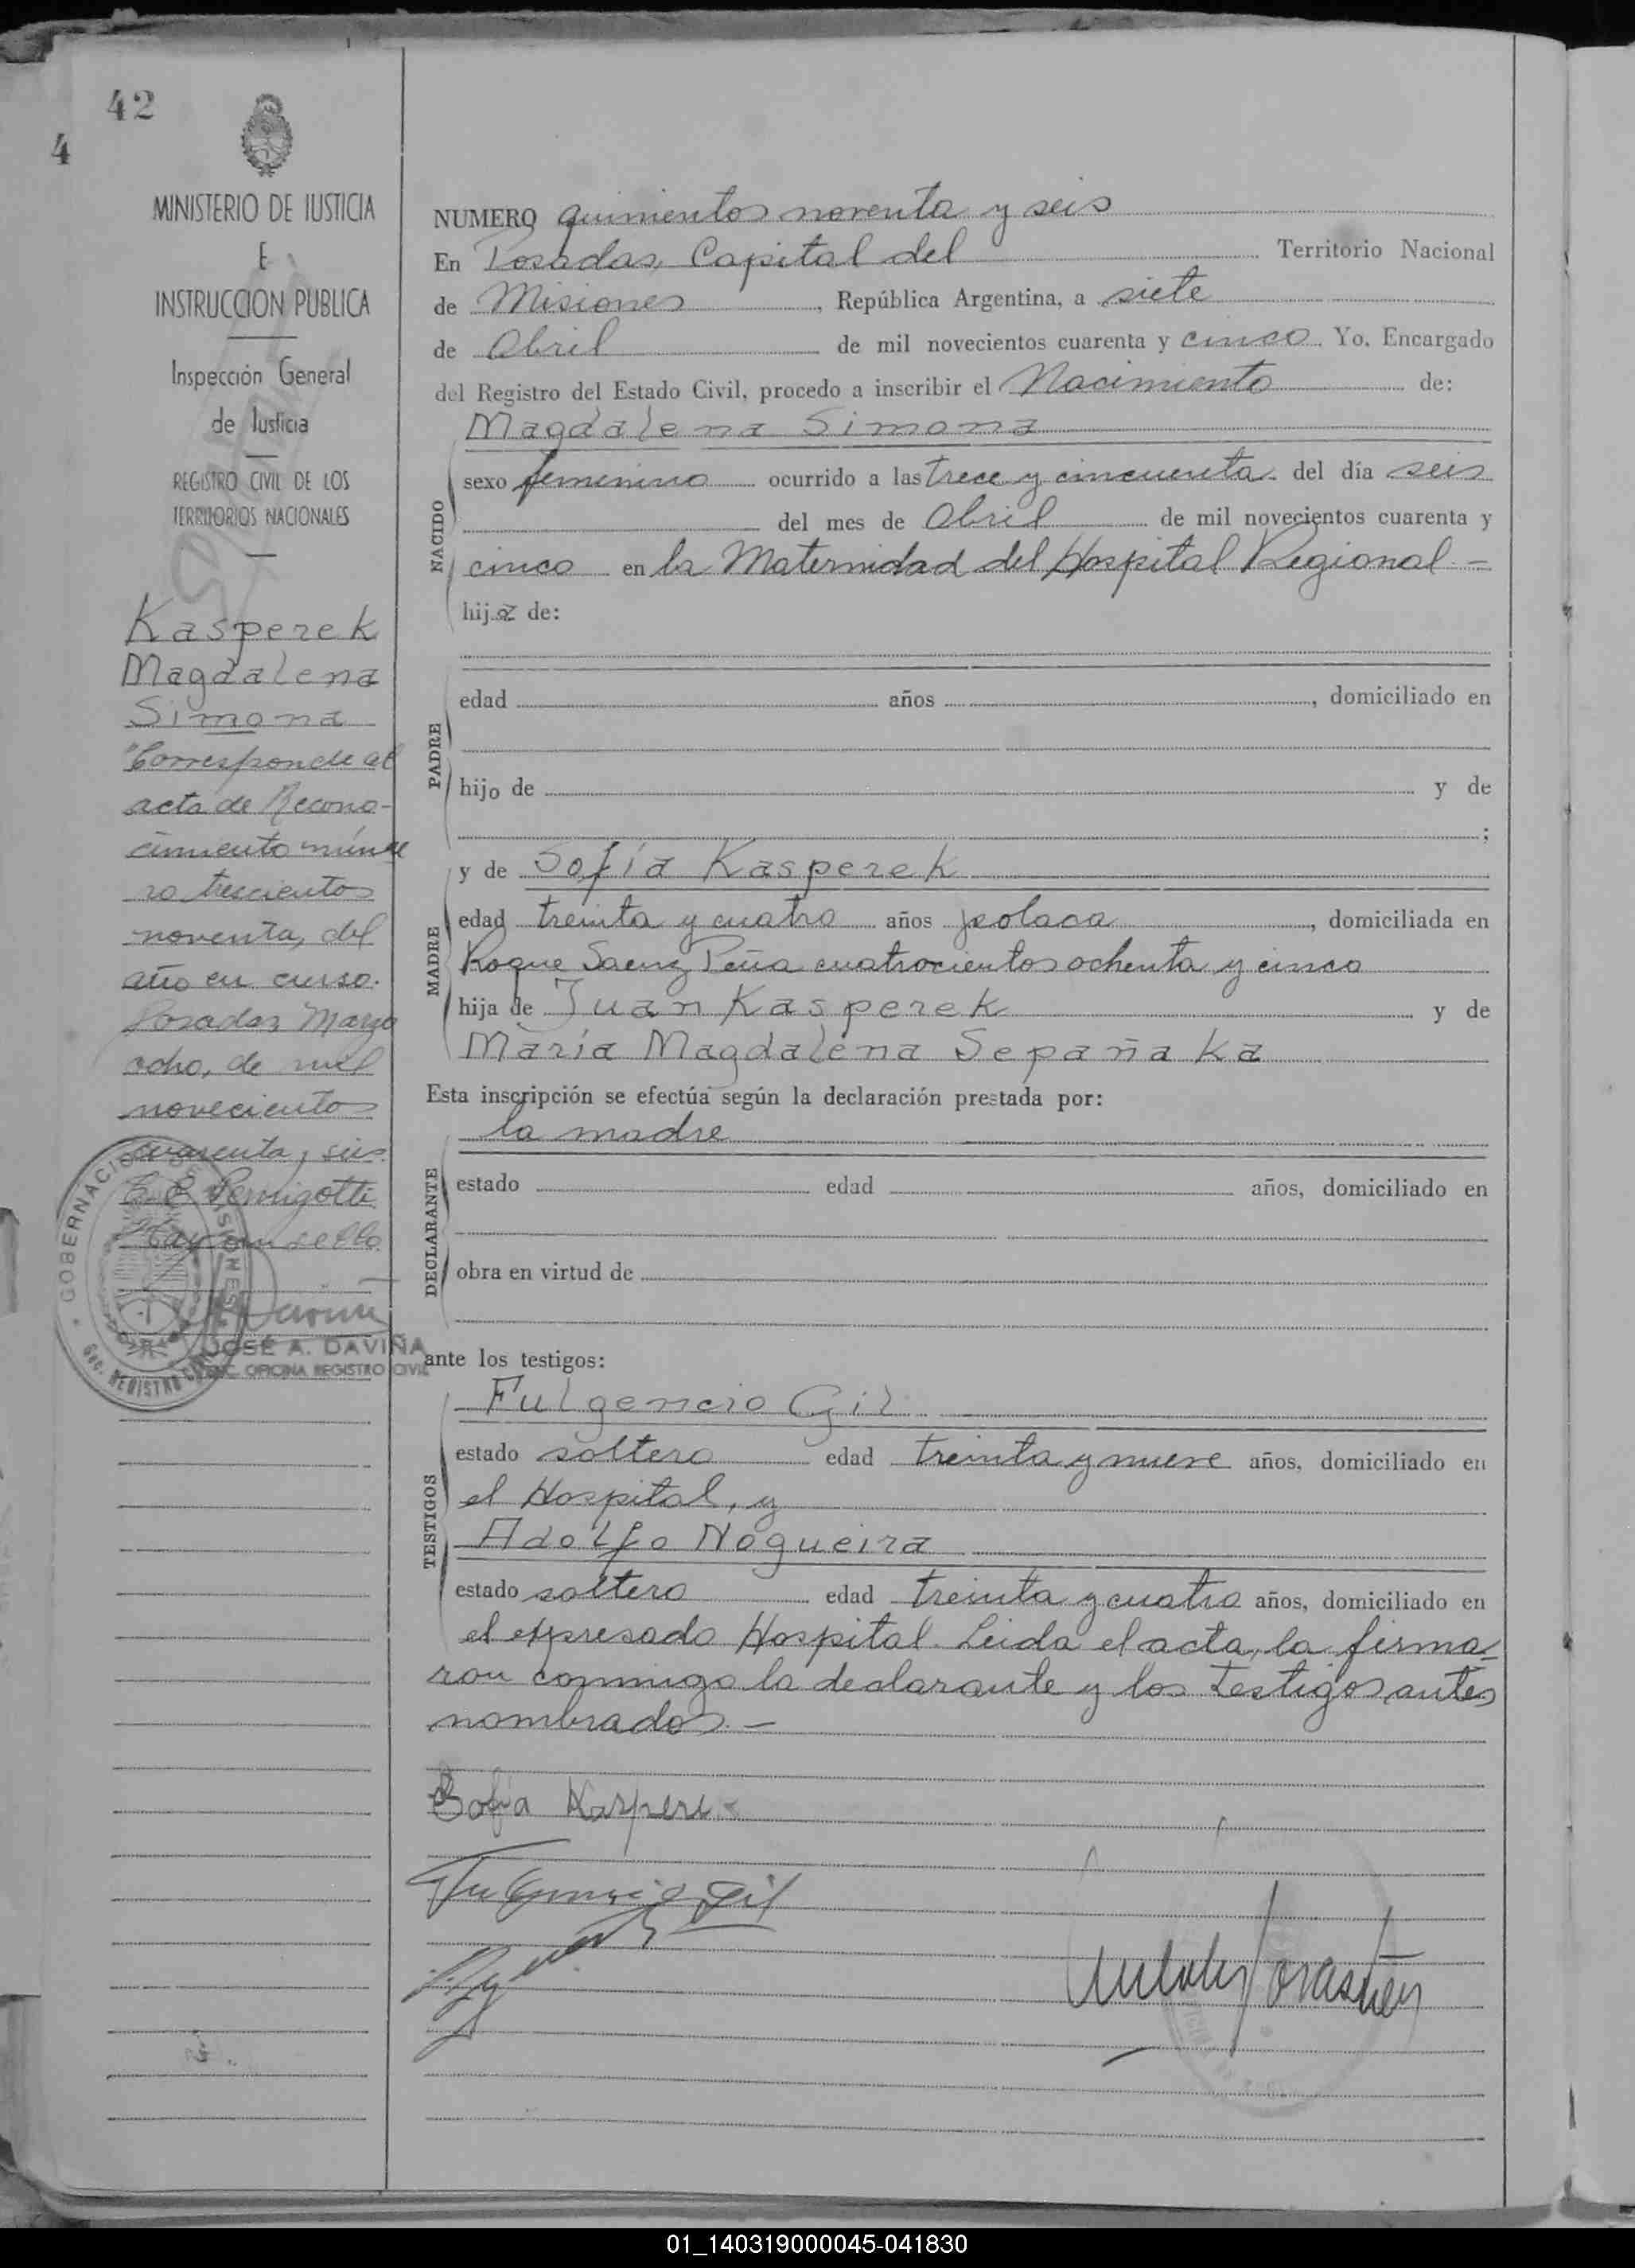 42
4
MINISTERIO DE JUSTICIA
E
INSTRUCCION PUBLICA
Inspección General
de Justicia
REGISTRO CIVIL DE LOS
TERRITORIOS NACIONALES
Kasperek
Magdalena
Simona
"Corresponde al
acta de Recono-
cimiento núme
ro trescientos
noventa, del
año en curso.
Posadas Marzo
ocho, de mil
novecientos
cuarenta y seis
Hay un sello
GOBERNACION DE MISIONES
REGISTRO CIVIL
JOSÉ A. DAVIÑA
ENC. OFICINA REGISTRO CIVIL
NUMERO quinientos noventa y seis
En Posadas, Capital del Territorio Nacional
de Misiones, República Argentina, a siete
de Abril de mil novecientos cuarenta y cinco. Yo, Encargado
del Registro del Estado Civil, procedo a inscribir el Nacimiento de:
Magdalena Simona
NACIDO
sexo femenino ocurrido a las trece y cincuenta del día seis
del mes de Abril de mil novecientos cuarenta y
cinco en la Maternidad del Hospital Regional -
hija de:
PADRE
edad años , domiciliado en
hijo de y de
;
MADRE
y de Sofía Kasperek
edad treinta y cuatro años polaca , domiciliada en
Roque Saenz Peña cuatrocientos ochenta y cinco
hija de Juan Kasperek y de
María Magdalena Sepañaka
Esta inscripción se efectúa según la declaración prestada por:
la madre
DECLARANTE
estado edad años, domiciliado en
obra en virtud de
ante los testigos:
TESTIGOS
Fulgencio Gil
estado soltero edad treinta y nueve años, domiciliado en
el Hospital, y
Adolfo Nogueira
estado soltero edad treinta y cuatro años, domiciliado en
el expresado Hospital. Leida el acta, la firma-
ron conmigo la declarante y los testigos antes
nombrados. -
Sofia Kasperek
Fulgencio Gil
01_140319000045-041830